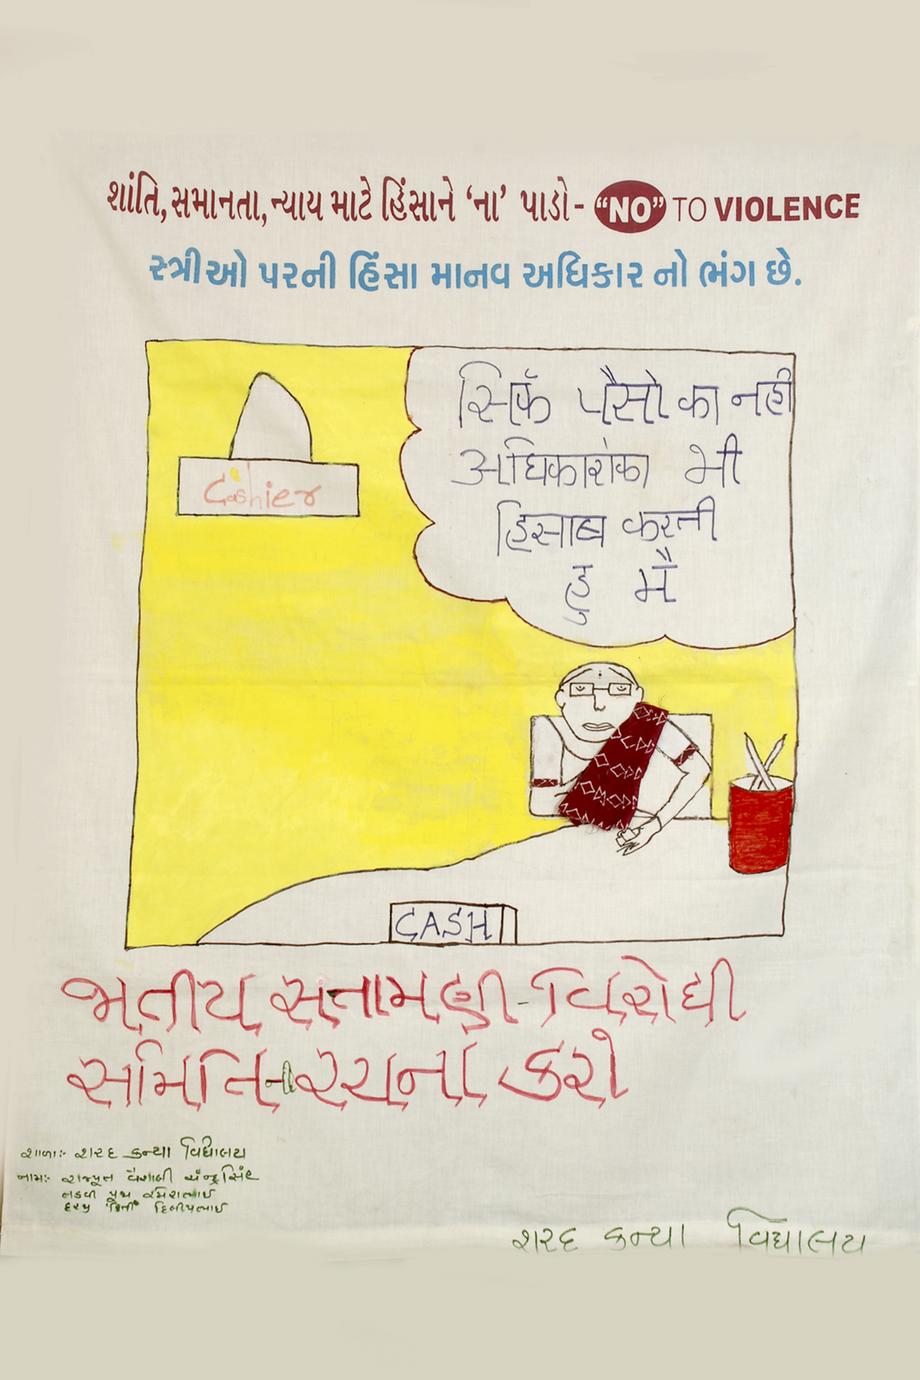 શાંતિ, સમાનતા, ન્યાય માટે હિંસાને ‘ના’ પાડો - “NO” TO VIOLENCE
સ્ત્રીઓ પરની હિંસા માનવ અધિકાર નો ભંગ છે.
सिर्फ पैसो का नही
अधिकारोका भी
हिसाब करती
हु मै
Cashier
CASH
જાતીય સતામણી-વિરોધી
સમિતિની રચના કરો
શાળા:- શરદ કન્યા વિદ્યાલય
નામ:- રાજપૂત વૈશાલી ચંન્દ્રસિંહ
તડવી પૂજા રમેશભાઈ
દિલીપભાઈ
શરદ કન્યા વિદ્યાલય